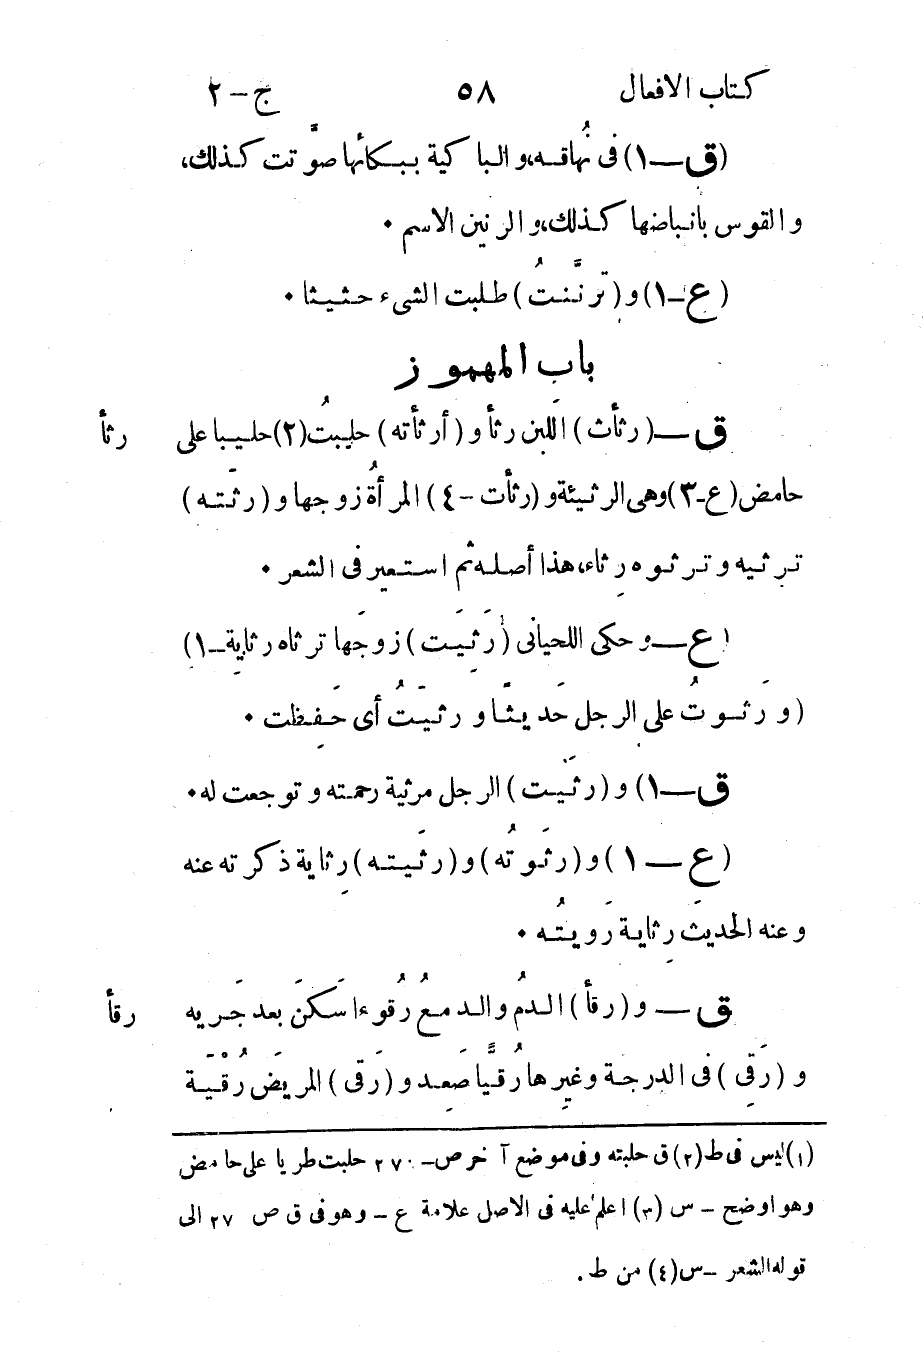 كتاب الافعال ٥٨ ج – ٢
(ق – ١) فى نُهاقه، والباكية ببكائها صوّتت كذلك،
والقوس بانباضها كذلك، والرنين الاسم ٠
(ع – ١) و (ترنَّنتُ) طلبت الشىء حثيثا ٠
باب المهموز
ق – (رثأت) اللبن رثأ و (أرثأته) حليتُ (٢) حليبا على رثأ
حامض (ع – ٣) وهى الرثيئة و (رثأت – ٤) المرأةُ زوجها و (رثَته)
ترثيه وترثوه رِثاء، هذا أصله ثم استعير فى الشعر ٠
(ع – وحكى اللحيانى (رَثِيَت) زوجَها ترثاه رِثاية – ١)
(و رَثوتُ على الرجل حَديثا و رثَيتُ أى حَفِظت ٠
ق – ١) و (رثَيت) الرجل مرثية رحمته وتوجعت له ٠
(ع – ١) و (رثَوتُه) و (رثَيته) رِثاية ذكرته عنه
وعنه الحديثَ رِثايةَ رَويتُه ٠
ق – و (رقأ) الدمُ والدمعُ رُقوءا سَكنَ بعد جَريه رقأ
و (رَقِى) فى الدرجة وغيرها رُقيًّا صَعِد و (رَقى) المريضَ رُقْيَة
(١) ليس فى ط (٢) ق حلبته وفى موضع آخر ص – ٢٧٠ حلبت طريا على حامض
وهو اوضح – س (٣) اعلم عليه فى الاصل علامة ع – وهو فى ق ص ٢٧ الى
قوله الشعر – س (٤) من ط .